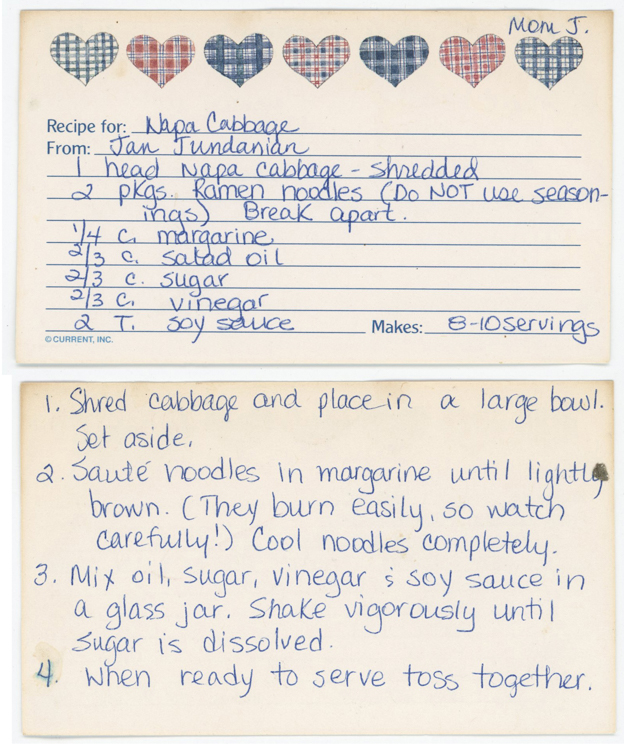 Mom J.
Recipe for: Napa Cabbage
From: Jan Jundanian
1 head Napa cabbage - shredded
2 pkgs. Ramen noodles (Do NOT use season-
ings) Break apart.
1/4 c. margarine
2/3 c. salad oil
2/3 c. sugar
2/3 c. vinegar
2 T. soy sauce Makes: 8-10 servings
© CURRENT, INC.
1. Shred cabbage and place in a large bowl.
Set aside.
2. Sauté noodles in margarine until lightly
brown. (They burn easily, so watch
carefully!) Cool noodles completely.
3. Mix oil, sugar, vinegar & soy sauce in
a glass jar. Shake vigorously until
sugar is dissolved.
4. When ready to serve toss together.